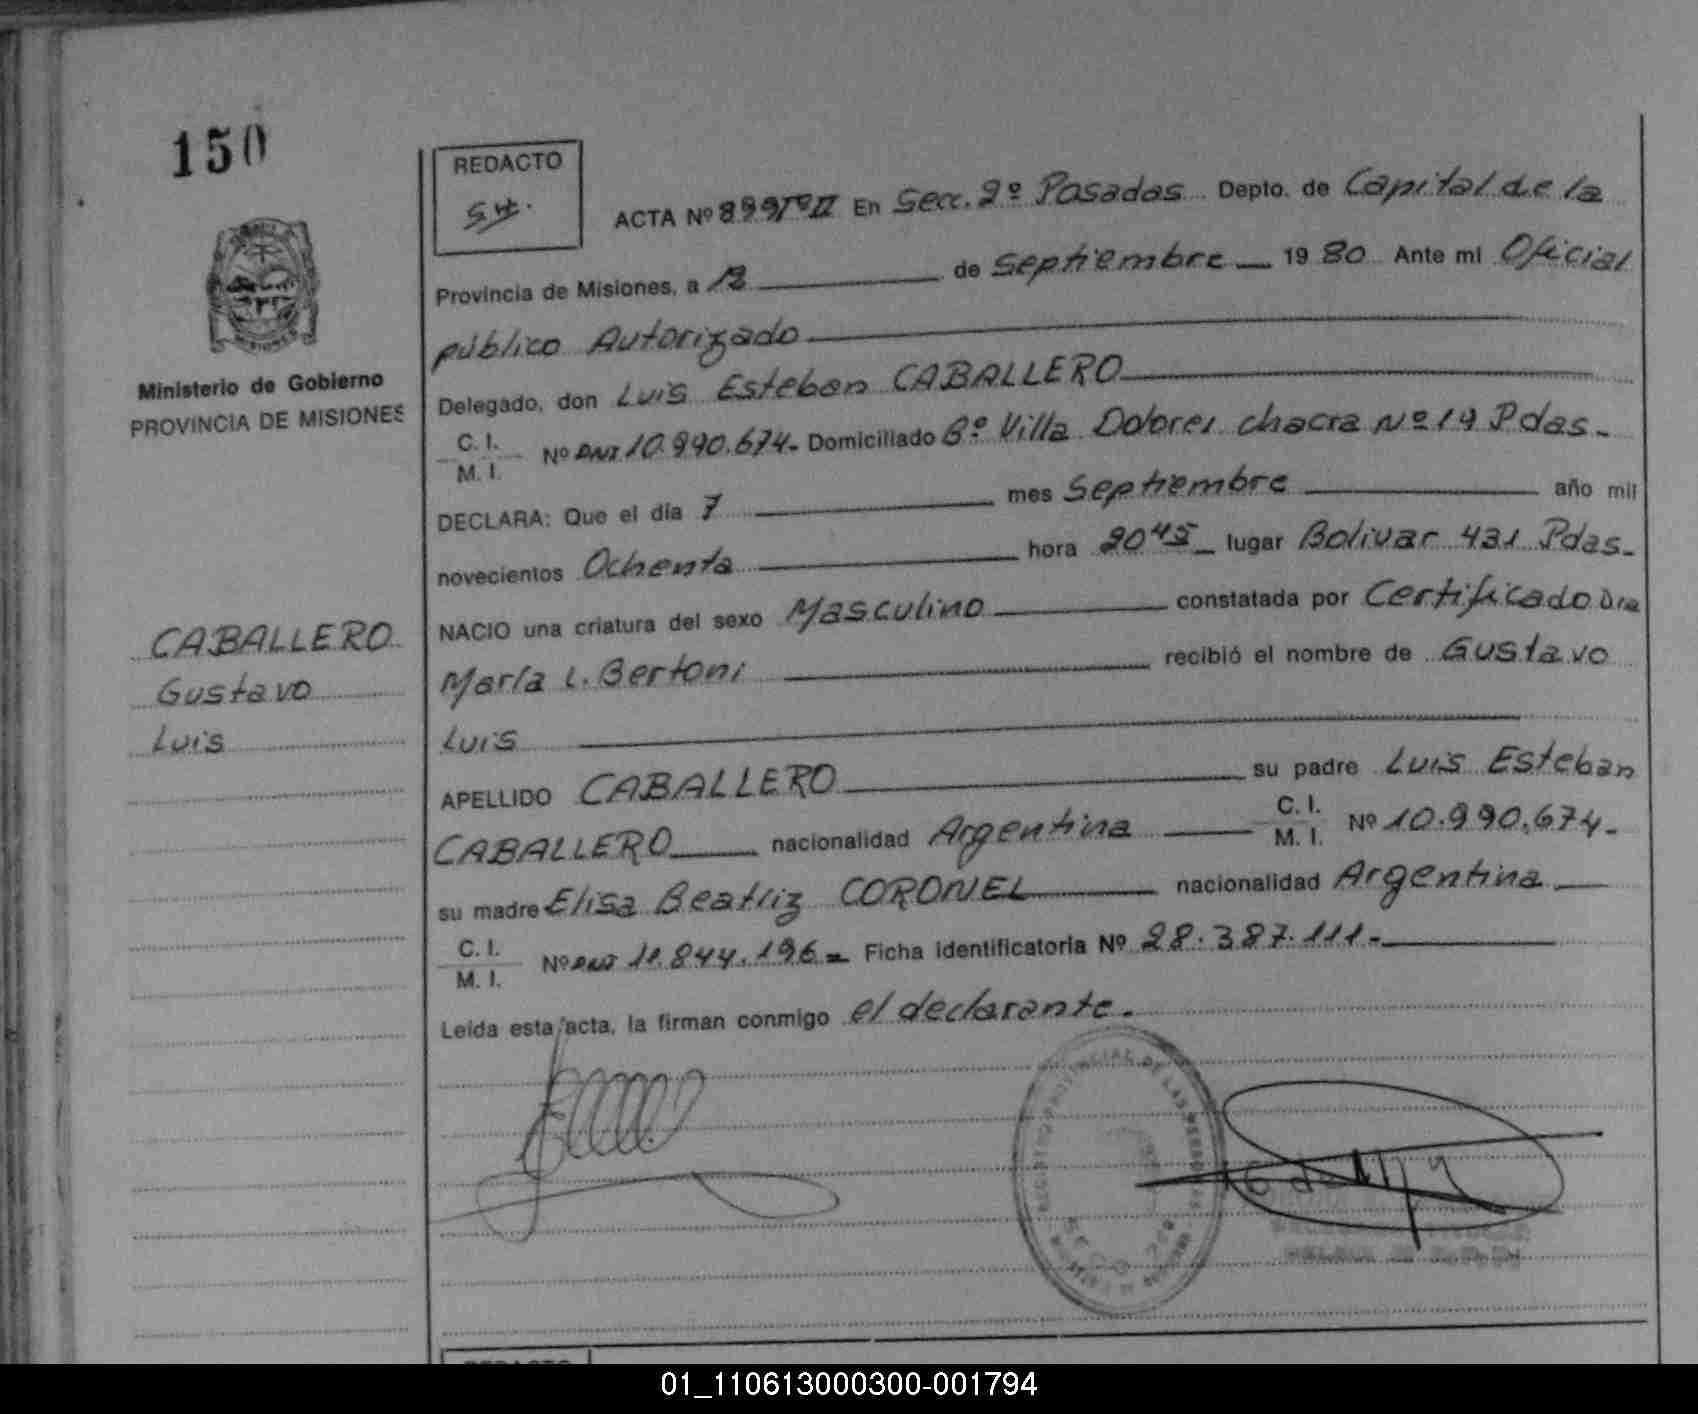 150
REDACTO
ACTA Nº 899/Tº II En Secc. 2º Posadas Depto. de Capital de la
Provincia de Misiones, a 12 de Septiembre 19 80 Ante mi Oficial
público Autorizado
Ministerio de Gobierno
PROVINCIA DE MISIONES
Delegado, don Luis Esteban CABALLERO
C. I.
M. I. Nº DNI 10.990.674.- Domiciliado Bº Villa Dolores chacra Nº 19 Pdas.-
DECLARA: Que el día 7 mes Septiembre año mil
novecientos Ochenta hora 20 45 lugar Bolivar 431 Pdas.-
CABALLERO
Gustavo
Luis
NACIO una criatura del sexo Masculino constatada por Certificado Dra
María L. Bertoni recibió el nombre de Gustavo
Luis
APELLIDO CABALLERO su padre Luis Esteban
CABALLERO nacionalidad Argentina C. I. M. I. Nº 10.990.674.-
su madre Elisa Beatriz CORONEL nacionalidad Argentina
C. I.
M. I. Nº DNI 11.844.196.- Ficha Identificatoria Nº 28.387.111.-
Leída esta acta, la firman conmigo el declarante.
REGISTRO PROVINCIAL DE LAS PERSONAS
REDACTO
01_110613000300-001794